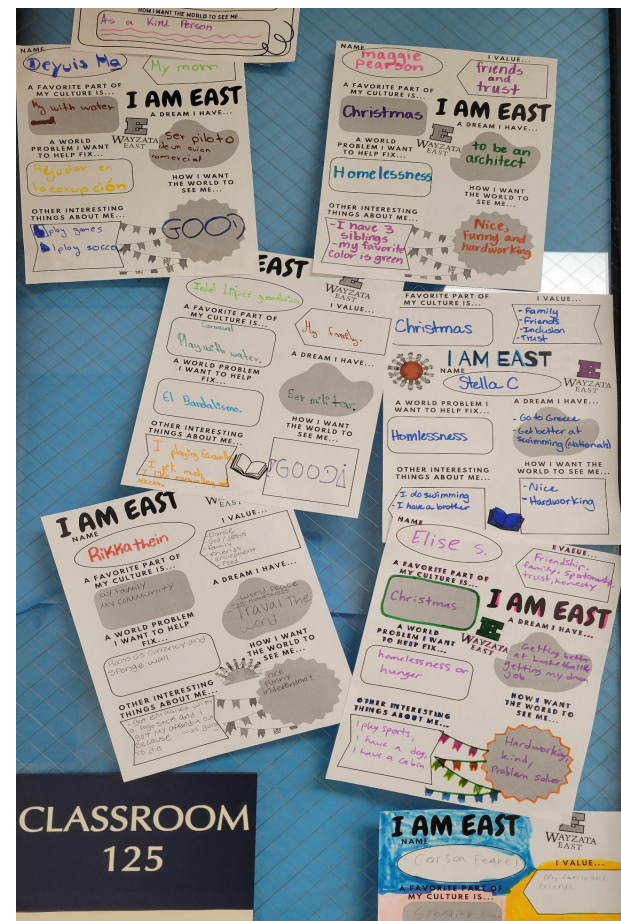 HOW I WANT THE WORLD TO SEE ME...
As a Kind Person
NAME
Deyuis Ma
My mom
A FAVORITE PART OF
MY CULTURE IS...
My with water
I AM EAST
WAYZATA
EAST
A DREAM I HAVE...
ser piloto
de un avion
comercial
A WORLD
PROBLEM I WANT
TO HELP FIX...
Ayudar en
la corupción
HOW I WANT
THE WORLD TO
SEE ME...
GOOD
OTHER INTERESTING
THINGS ABOUT ME...
I play games
I play socce
NAME
maggie
pearson
I VALUE...
friends
and
trust
A FAVORITE PART OF
MY CULTURE IS...
Christmas
I AM EAST
WAYZATA
EAST
A DREAM I HAVE...
to be an
architect
A WORLD
PROBLEM I WANT
TO HELP FIX...
Homelessness
HOW I WANT
THE WORLD TO
SEE ME...
Nice,
Funny and
hardworking
OTHER INTERESTING
THINGS ABOUT ME...
-I have 3
siblings
-my favorite
color is green
EAST
WAYZATA
EAST
López
A FAVORITE PART OF
MY CULTURE IS...
Carnaval
Play with water.
My family.
A WORLD PROBLEM
I WANT TO HELP
FIX...
El Bandalismo.
A DREAM I HAVE...
Ser militar.
OTHER INTERESTING
THINGS ABOUT ME...
I playing
soccer.
HOW I WANT THE
WORLD TO
SEE ME...
GOOD
FAVORITE PART OF
MY CULTURE IS...
Christmas
I VALUE...
- Family
- Friends
- Inclusion
- Trust
I AM EAST
NAME
Stella C
WAYZATA
EAST
A WORLD PROBLEM I
WANT TO HELP FIX...
Homlessness
A DREAM I HAVE...
- Go to Greece
- Get better at
swimming (Nationals)
OTHER INTERESTING
THINGS ABOUT ME...
I do swimming
I have a brother
HOW I WANT THE
WORLD TO SEE ME...
- Nice
- Hardworking
I AM EAST
NAME
Rikkathein
I VALUE...
- Dance
- God / Jesus
- Family
- Friends
- Food
A FAVORITE PART OF
MY CULTURE IS...
my family
my community
A DREAM I HAVE...
- world peace
Traval The
world
A WORLD PROBLEM
I WANT TO HELP
FIX...
HOW I WANT
THE WORLD TO
SEE ME...
nice
funny
independent
OTHER INTERESTING
THINGS ABOUT ME...
because
to die
NAME
Elise S.
I VALUE...
Friendship,
family,
trust, honesty
A FAVORITE PART OF
MY CULTURE IS...
Christmas
I AM EAST
WAYZATA
EAST
A DREAM I HAVE...
Getting better
at basketball
getting my dream
job
A WORLD
PROBLEM I WANT
TO HELP FIX...
homelessness or
hunger
HOW I WANT
THE WORLD TO
SEE ME...
Hardworking,
kind,
Problem solver
OTHER INTERESTING
THINGS ABOUT ME...
I play sports,
I have a dog,
I have a cabin
CLASSROOM
125
I AM EAST
NAME
WAYZATA
EAST
Carson
I VALUE...
My family and
friends
A FAVORITE PART OF
MY CULTURE IS...